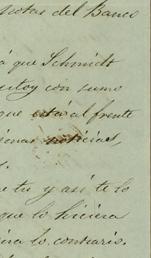 notas del Banco
á que Schmidt
estoy con sumo
que está al frente
buenas noticias,
e tu y así te lo
que lo hiciera
iera lo contrario.